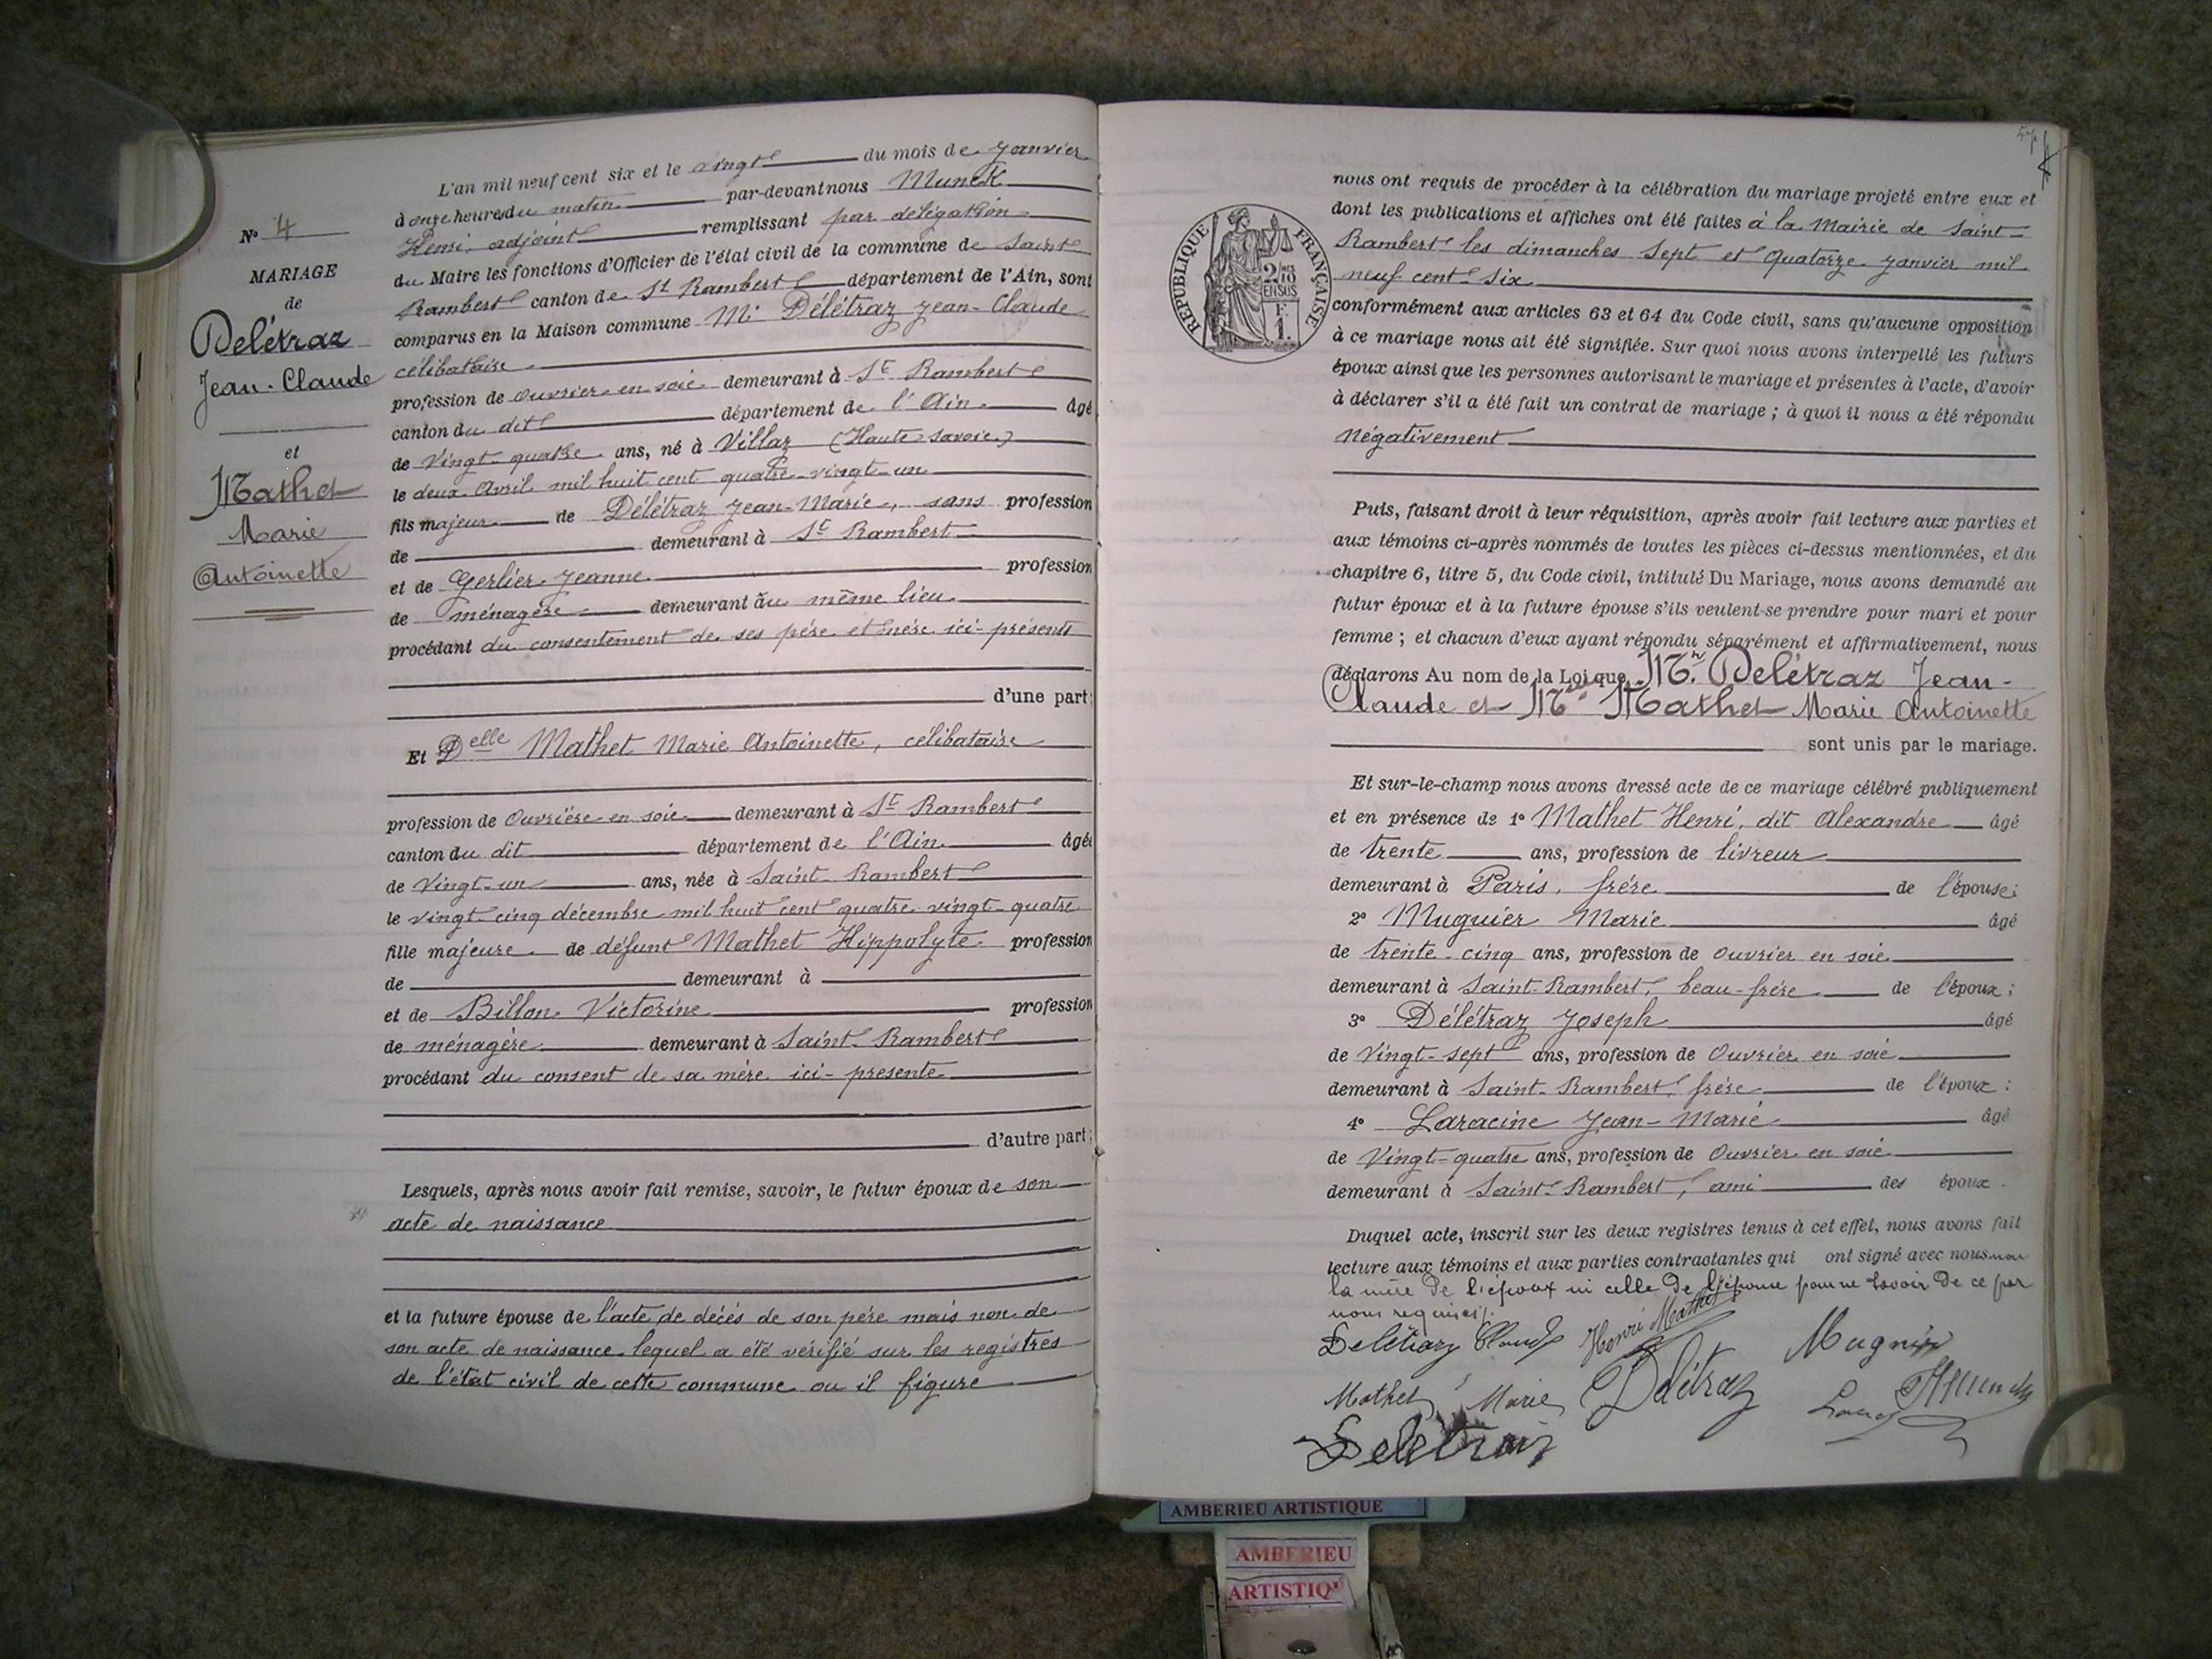 L'an mil neuf cent six et le vingt du mois de Janvier
à onze heures du matin par-devant nous Munck
Henri, adjoint remplissant par délégation
du Maire les fonctions d'Officier de l'état civil de la commune de Saint
Rambert canton de St Rambert département de l'Ain, sont
comparus en la Maison commune Mr Délétraz Jean-Claude
célibataire
profession de ouvrier en soie demeurant à St Rambert
canton du dit département de l'Ain âgé
de Vingt-quatre ans, né à Villaz (Haute-Savoie)
le deux Avril mil huit cent quatre-vingt-un
fils majeur de Délétraz Jean-Marie, sans profession
de demeurant à St Rambert
et de Gerlier Jeanne profession
de ménagère demeurant au même lieu
procédant du consentement de ses père et mère ici-présents
d'une part;
Et Delle Mathet Marie Antoinette, célibataire
profession de Ouvrière en soie demeurant à St Rambert
canton du dit département de l'Ain âgée
de Vingt-un ans, née à Saint-Rambert
le vingt-cinq décembre mil huit cent quatre-vingt-quatre
fille majeure de défunt Mathet Hippolyte profession
de demeurant à
et de Billon Victorine profession
de ménagère demeurant à Saint-Rambert
procédant du consent de sa mère ici-présente
d'autre part;
Lesquels, après nous avoir fait remise, savoir, le futur époux de son
acte de naissance
et la future épouse de l'acte de décès de son père mais non de
son acte de naissance lequel a été vérifié sur les registres
de l'état civil de cette commune ou il figure
No 4
MARIAGE
de
Delétraz
Jean-Claude
et
Mathet
Marie
Antoinette
nous ont requis de procéder à la célébration du mariage projeté entre eux et
dont les publications et affiches ont été faites à la Mairie de Saint-
Rambert les dimanches Sept et Quatorze Janvier mil
neuf cent-six
conformément aux articles 63 et 64 du Code civil, sans qu'aucune opposition
à ce mariage nous ait été signifiée. Sur quoi nous avons interpellé les futurs
époux ainsi que les personnes autorisant le mariage et présentes à l'acte, d'avoir
à déclarer s'il a été fait un contrat de mariage ; à quoi il nous a été répondu
Négativement
Puis, faisant droit à leur réquisition, après avoir fait lecture aux parties et
aux témoins ci-après nommés de toutes les pièces ci-dessus mentionnées, et du
chapitre 6, titre 5, du Code civil, intitulé Du Mariage, nous avons demandé au
futur époux et à la future épouse s'ils veulent se prendre pour mari et pour
femme ; et chacun d'eux ayant répondu séparément et affirmativement, nous
déclarons Au nom de la Loi que Mr Delétraz Jean-
Claude et Mlle Mathet Marie Antoinette
sont unis par le mariage.
Et sur-le-champ nous avons dressé acte de ce mariage célébré publiquement
et en présence de 1° Mathet Henri, dit Alexandre âgé
de trente ans, profession de livreur
demeurant à Paris, frère de l'épouse;
2° Muguier Marie âgé
de trente-cinq ans, profession de ouvrier en soie
demeurant à Saint-Rambert, beau-frère de l'époux;
3° Délétraz Joseph âgé
de Vingt-sept ans, profession de Ouvrier en soie
demeurant à Saint-Rambert, frère de l'époux:
4° Laracine Jean-Marie âgé
de Vingt-quatre ans, profession de Ouvrier en soie
demeurant à Saint-Rambert, ami des époux.
Duquel acte, inscrit sur les deux registres tenus à cet effet, nous avons fait
lecture aux témoins et aux parties contractantes qui ont signé avec nous non
la mère de l'époux ni celle de l'épouse pour ne savoir de ce par
nous requises.
Delétraz Claude Henri Mathet Mugnier
Mathet Marie Delétraz Munck
Delétraz
RÉPUBLIQUE FRANÇAISE
2/10
EN SUS
F.
1.
AMBERIEU ARTISTIQUE
AMBERIEU
ARTISTIQ